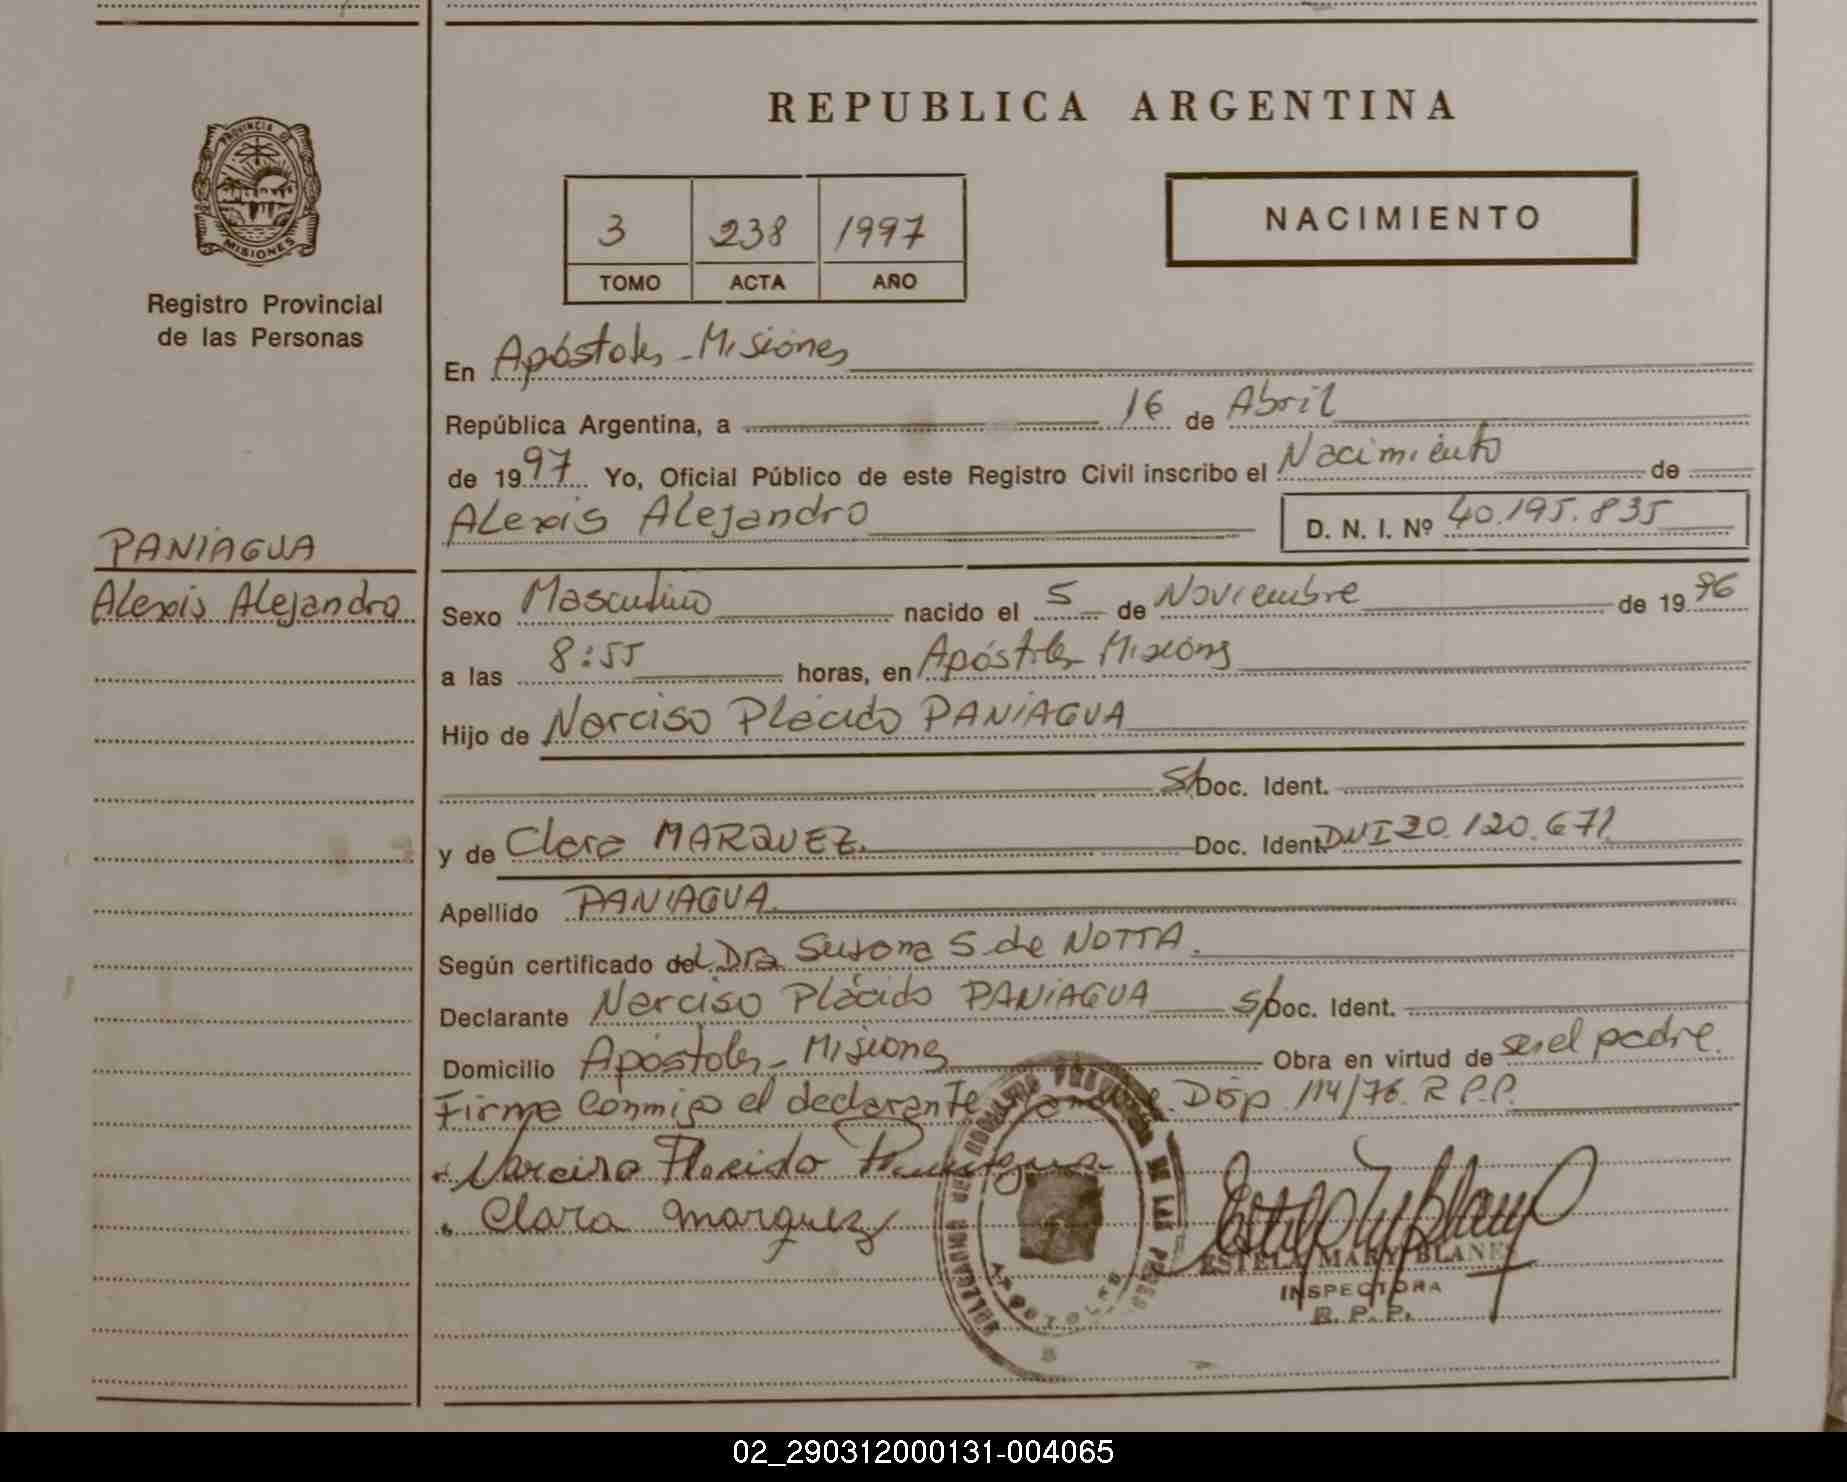 REPUBLICA ARGENTINA
PROVINCIA DE
MISIONES
Registro Provincial
de las Personas
3 238 1997
TOMO ACTA AÑO
NACIMIENTO
En Apóstoles - Misiones
República Argentina, a 16 de Abril
de 1997 Yo, Oficial Público de este Registro Civil inscribo el Nacimiento de
Alexis Alejandro D. N. I. Nº 40.195.835
PANIAGUA
Alexis Alejandro
Sexo Masculino nacido el 5 de Noviembre de 1996
a las 8:55 horas, en Apóstoles - Misiones
Hijo de Narciso Plácido PANIAGUA
S/Doc. Ident.
y de Clara MARQUEZ. Doc. Ident. DNI 20.120.671
Apellido PANIAGUA.
Según certificado del Dra Susana S. de NOTTA.
Declarante Narciso Plácido PANIAGUA S/Doc. Ident.
Domicilio Apóstoles - Misiones Obra en virtud de ser el padre.
Firma conmigo el declarante Disp. 114/76. R.P.P.
Narciso Placido Paniagua
Clara Marquez
DELEGACION DEL REGISTRO PROVINCIAL DE LAS PERSONAS
APOSTOLES
ESTELA MARY BLANES
INSPECTORA
R. P. P.
02_290312000131-004065